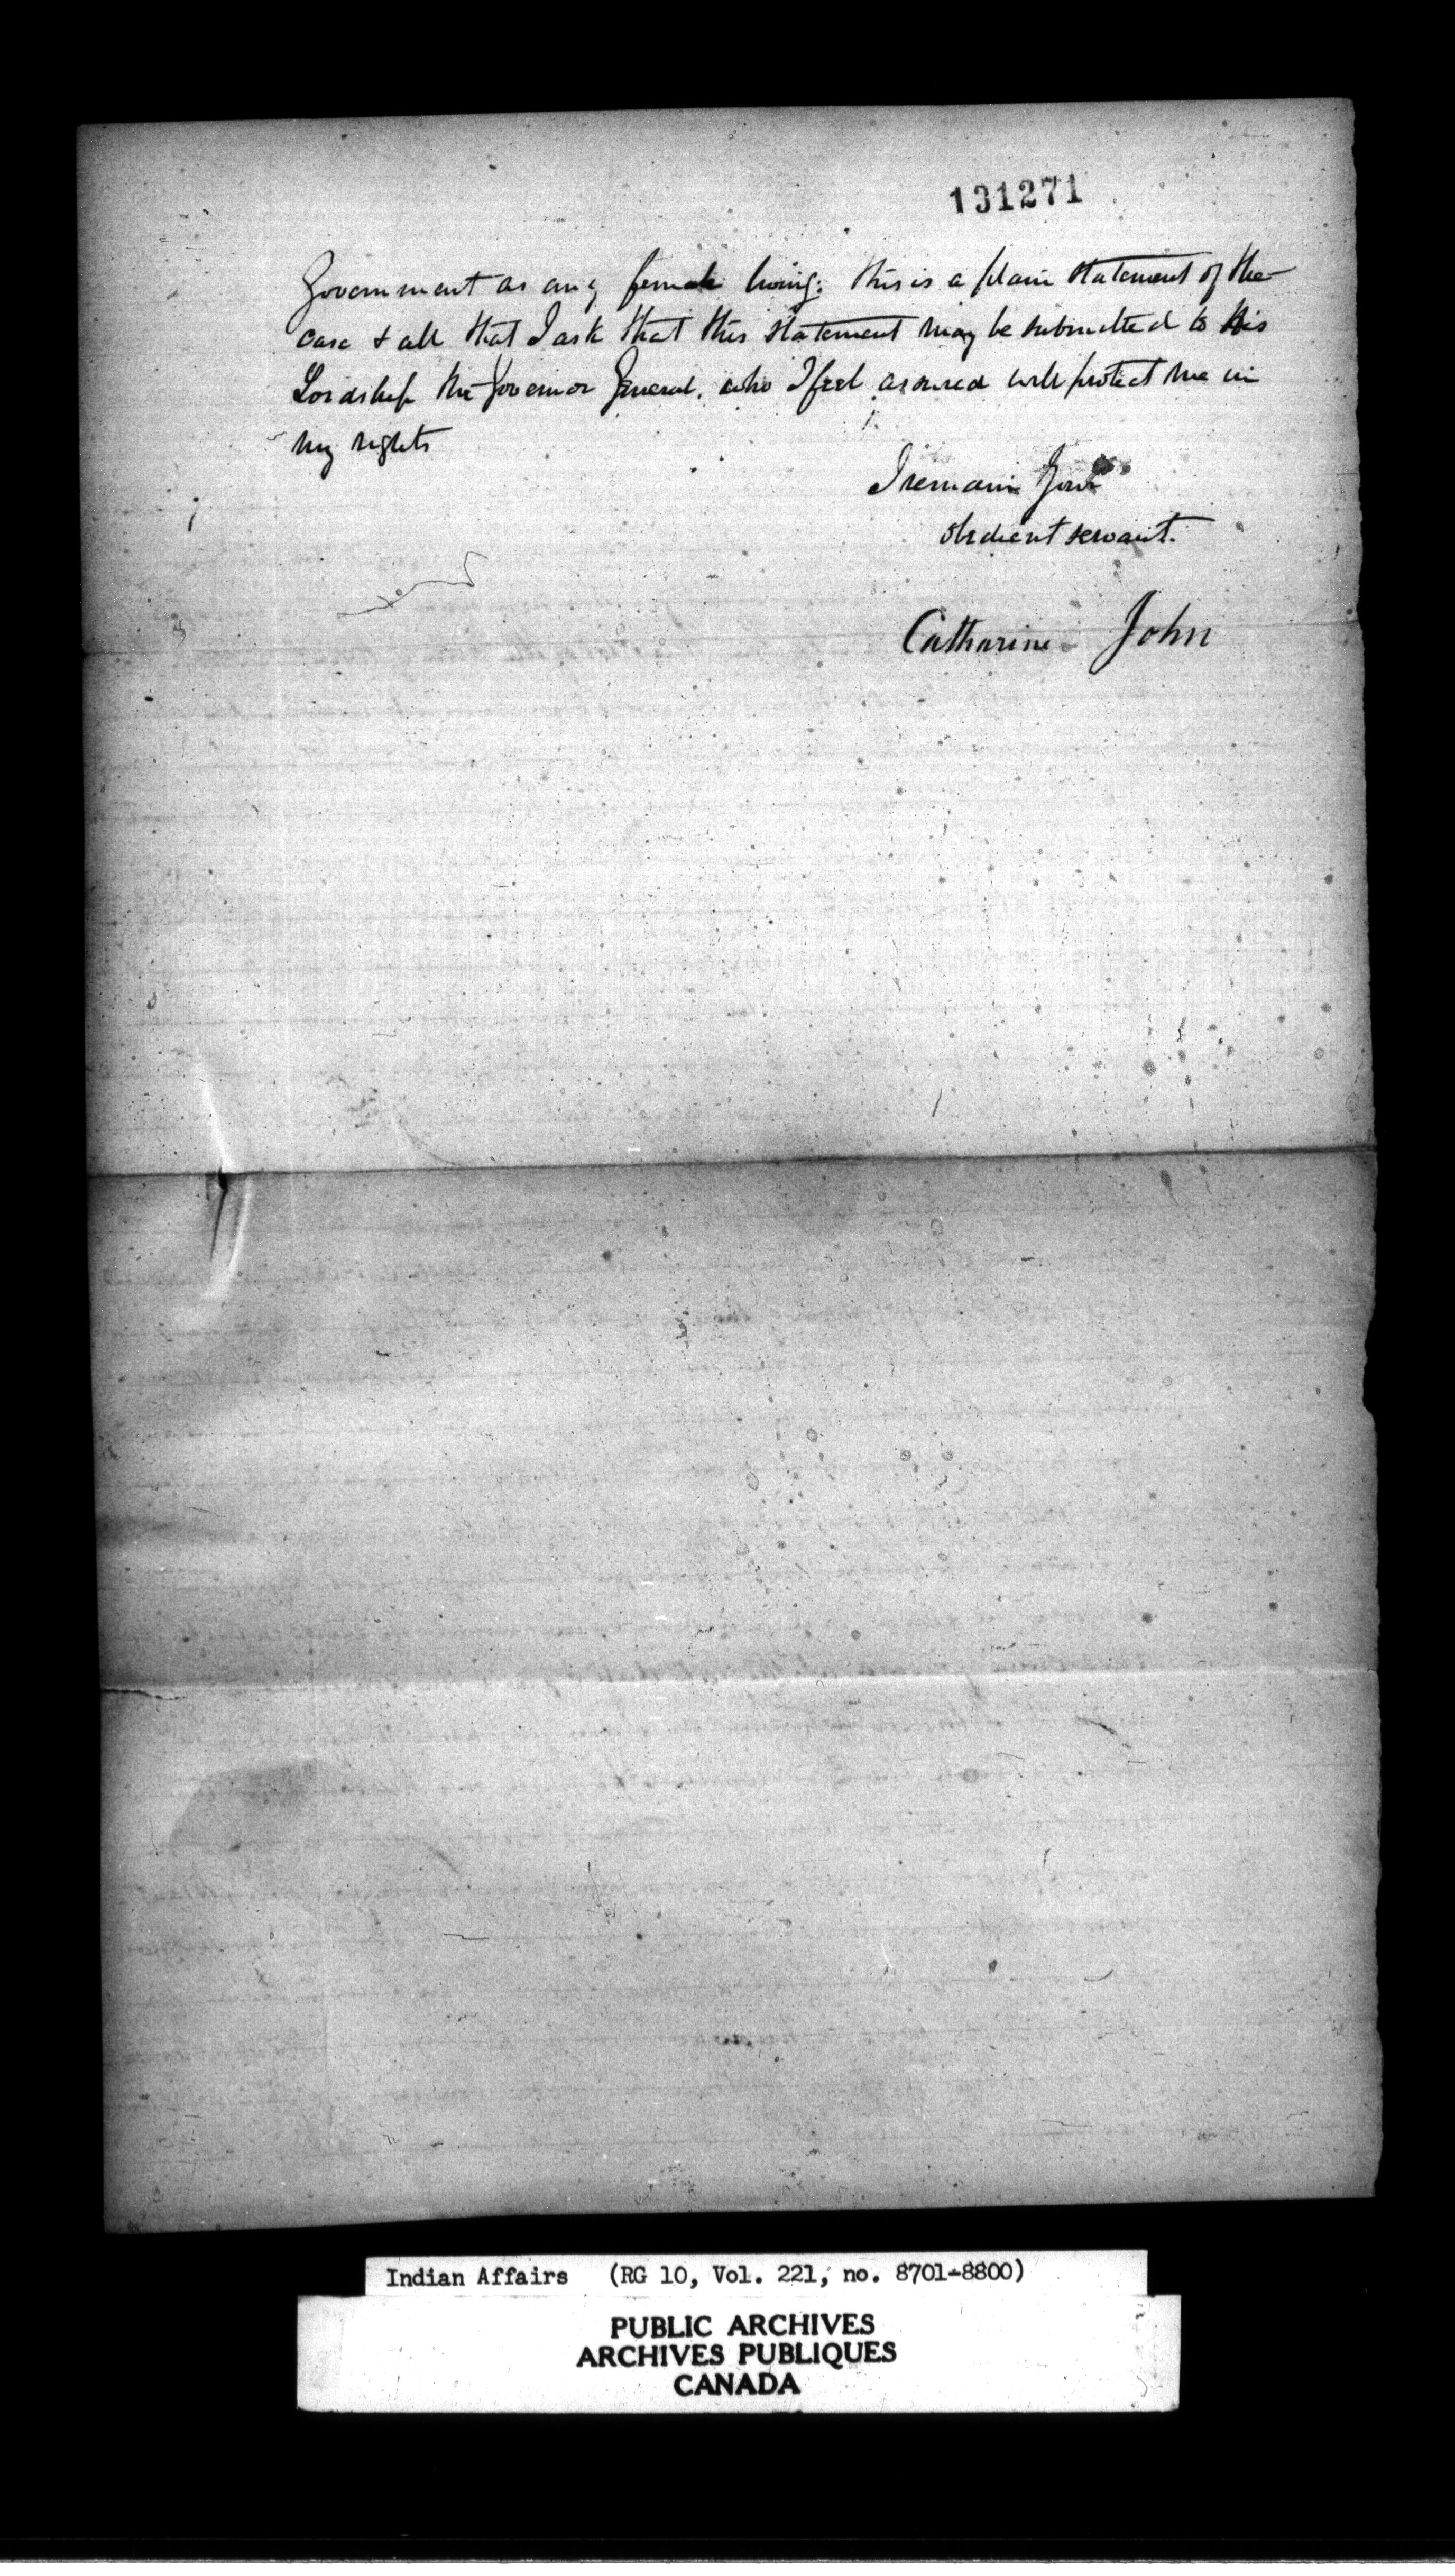 131271
Government as any female living. this is a plain statement of the
case & all that I ask that this statement may be submitted to His
Lordship the Governor General. who I feel assured will protect me in
my rights
I remain Your
obedient servant.
Catharine John
Indian Affairs (RG 10, Vol. 221, no. 8701-8800)
PUBLIC ARCHIVES
ARCHIVES PUBLIQUES
CANADA